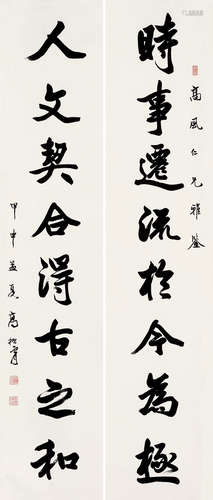 高風仁兄雅鑒
時事遷流於今為極
人文契合得古之和
甲申孟夏高振霄